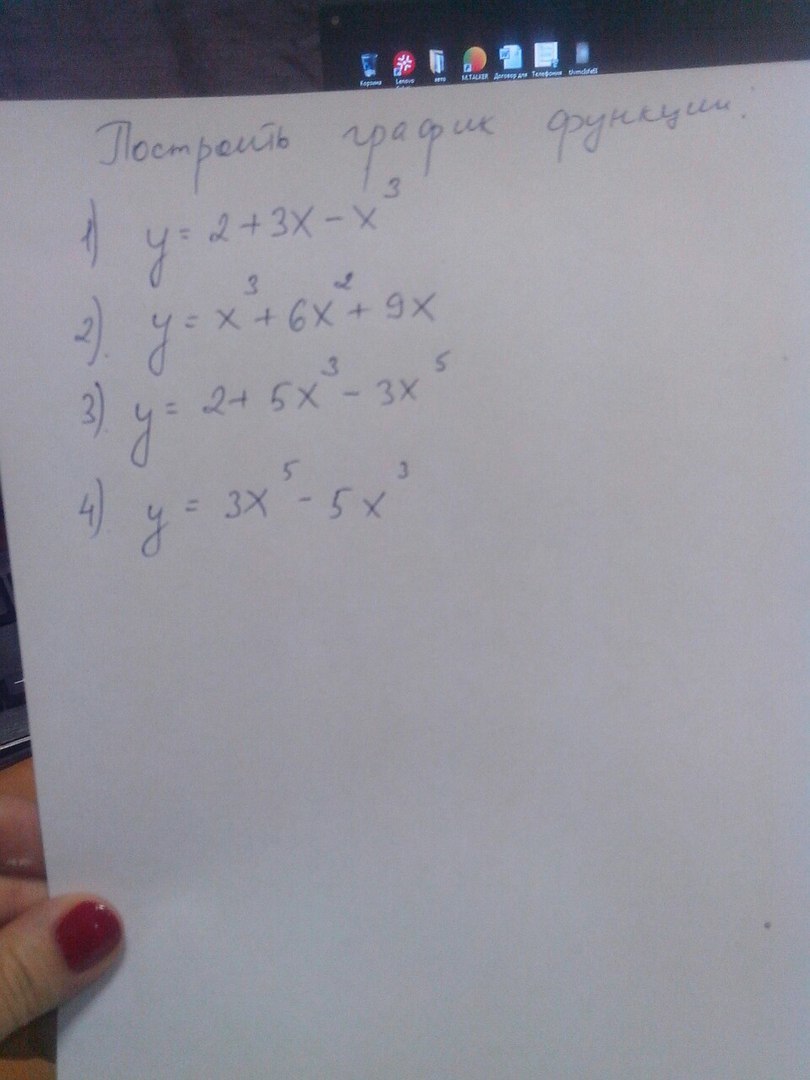 Корзина Lenovo авто M.TALKER Договор для Телефония
Построить график функции:
1) y = 2 + 3x - x³
2). y = x³ + 6x² + 9x
3). y = 2 + 5x³ - 3x⁵
4) y = 3x⁵ - 5x³